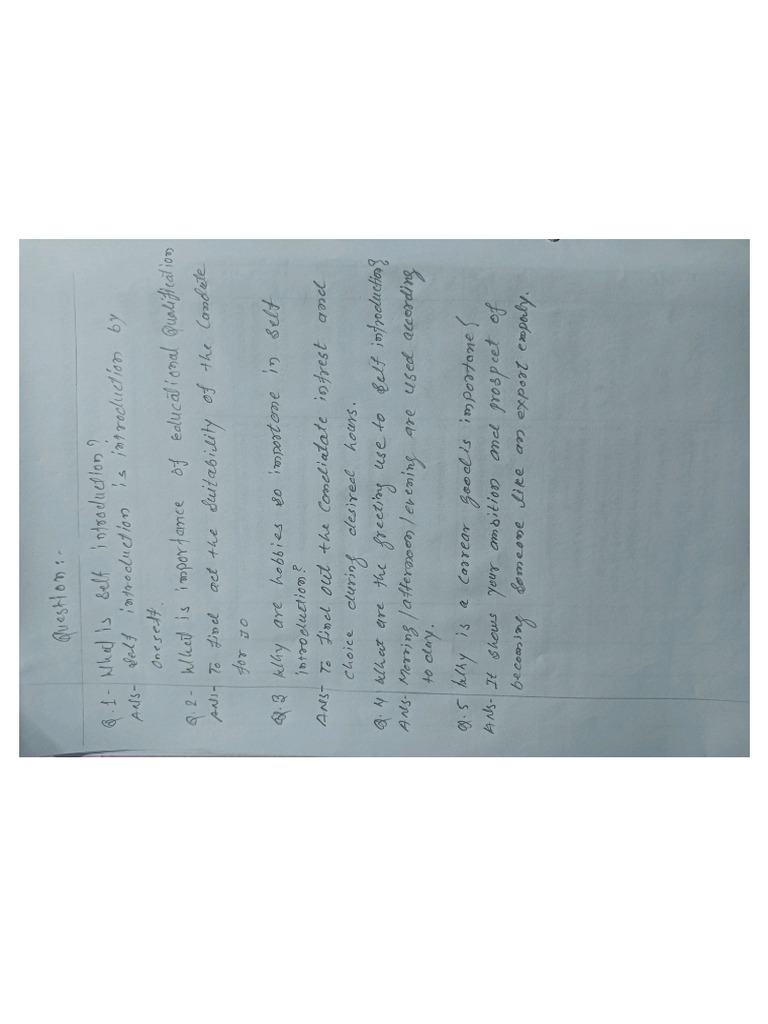 Question:-
Q.1- What is self introduction?
Ans- Self introduction is introduction by
oneself.
Q.2- What is importance of educational Qualification
Ans- To find act the suitability of the Candete
for Jo
Q.3 Why are hobbies so importone in self
introduction?
Ans- To find out the Condiatate intrest and
choice during desired hours.
Q.4 What are the greeting use to self introduction?
Ans- Morring/afternoon/evening are used according
to day.
Q.5 Why is a correar goodis importane?
Ans- It shows your ambition and prospect of
becoming someone like an export emporly.